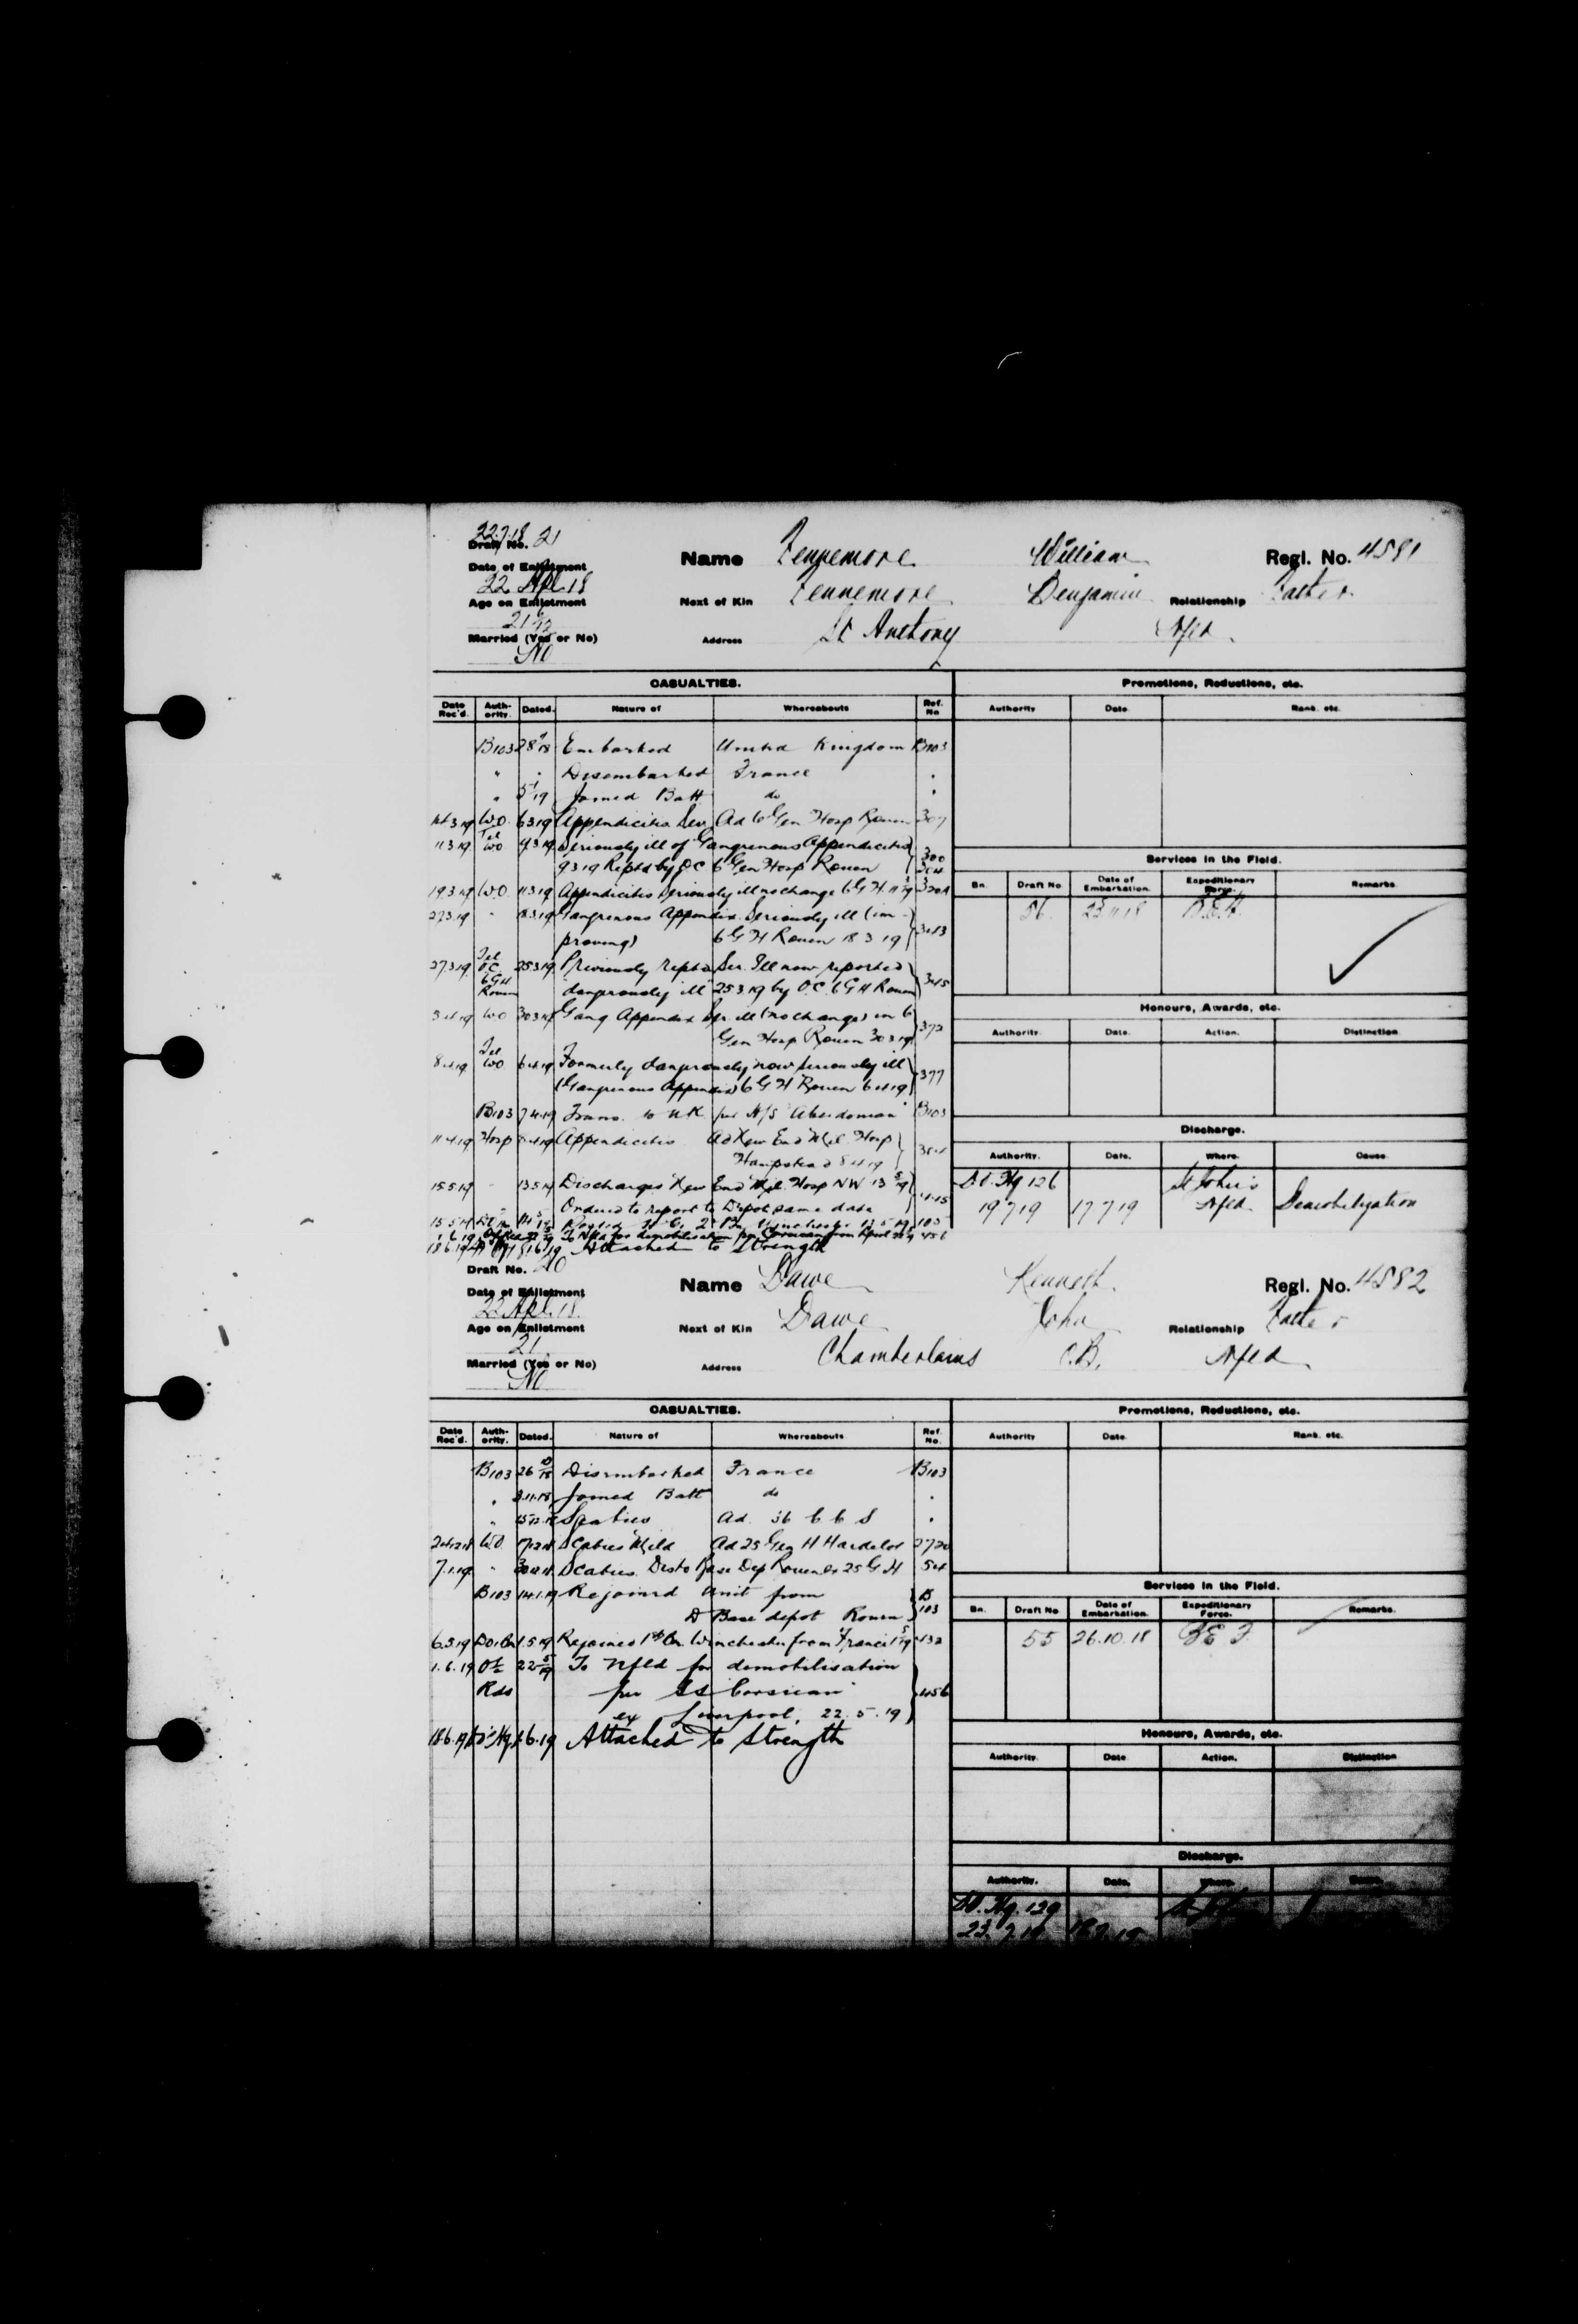 22.7.18
Draft No. 21
Name Fennemore William Regl. No. 4581
Date of Enlistment
22 Apl. 18
Next of Kin Fennemore Benjamin Relationship Father
Age on Enlistment
21
Address St Anthony Nfld.
Married (Yes or No)
No
CASUALTIES.
Date Rec'd. Authority. Dated. Nature of Whereabouts Ref. No
B103 28 18 Embarked United Kingdom B103
" " Disembarked France "
" 5 1 19 Joined Batt do "
14.3.19 WO 6.3.19 Appendicitis Sev. Ad 6 Gen Hosp Rouen 307
11.3.19 Tel WO 9.3.19 Seriously ill of Gangrenous Appendicitis
9 3 19 Reptd by O C 6 Gen Hosp Rouen 300
19.3.19 W.O. 11.3.19 Appendicitis Seriously ill no change 6 G H. 11 3 19
27.3.19 " 18.3.19 Gangrenous Appendix. Seriously ill (im-
proving) 6 G H Rouen 18 3 19 343
27.3.19 Tel O.C. 6 G H Rouen 25.3.19 Previously reptd Ser. Ill now reported
"dangerously ill" 25 3 19 by O.C. 6 G H Rouen 345
3.4.19 WO 30.3.19 Gang Appendix Ser. ill (no change) in 6
Gen Hosp Rouen 30 3 19 372
8.4.19 Tel WO 6.4.19 Formerly dangerously now seriously ill
(Gangrenous Appendix) 6 G H Rouen 6 4 19 377
B103 7.4.19 Trans. to UK per H/S "Aberdonian" B103
11.4.19 Hosp 8.4.19 Appendicitis Ad New End Mil Hosp
Hampstead 8 4 19 384
15.5.19 " 13.5.19 Discharged New End Mil. Hosp NW 13 5 19
Ordered to report to Depot same date
15.5.19 14 5 19 Winchester 13.5.19 105
1.6.19 22 5 19 To Nfld for demobilisation per Corsican from Lpool 22 5 19 456
18.6.19 1.6.19 Attached to Strength
Promotions, Reductions, etc.
Authority Date. Rank. etc.
Services in the Field.
Bn. Draft No. Date of Embarkation. Expeditionary Force. Remarks.
56 23 11 18 B.E.F.
Honours, Awards, etc.
Authority. Date. Action. Distinction
Discharge.
Authority. Date. Where. Cause
D.O. Hq 126 St John's
19 7 19 17 7 19 Nfld. Demobilization
Draft No. 20
Name Dawe Kenneth. Regl. No. 4582
Date of Enlistment
22 Apl. 18.
Next of Kin Dawe John Relationship Father
Age on Enlistment
21.
Address Chamberlains C.B. Nfld
Married (Yes or No)
No
CASUALTIES.
Date Rec'd. Authority. Dated. Nature of Whereabouts Ref. No.
B103 26 10 18 Disembarked France B103
" 3.11.18 Joined Batt do "
" 15.12.18 Scabies Ad. 36 C C S "
24.12.18 WO 17.12.18 Scabies Mild Ad 25 Gen H Hardelot 2720
7.1.19 " 30.12.18 Scabies. Dis to Base Dep Rouen ex 25 G H 54
B103 14.1.19 Rejoined Unit from
Base depot Rouen B 103
6.5.19 1.5.19 Rejoined 1st Bn. Winchester from France 1 5 19 432
1.6.19 Of i/c Rds 22 5 19 To Nfld for demobilisation
per SS "Corsican"
ex Liverpool, 22.5.19 456
18.6.19 1.6.19 Attached to Strength
Promotions, Reductions, etc.
Authority Date. Rank. etc.
Services in the Field.
Bn. Draft No Date of Embarkation. Expeditionary Force. Remarks.
55 26.10.18 B.E.F.
Honours, Awards, etc.
Authority. Date Action. Distinction
Discharge.
Authority. Date. Where.
D.O. Hq. 129
23.7.19